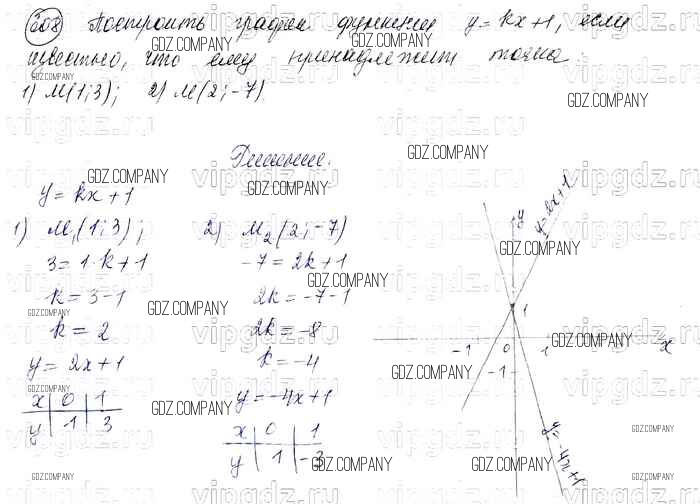 308 Построить график функции y = kx + 1, если
известно, что ему принадлежит точка.
1) М(1; 3); 2) М(2; -7)
Решение.
y = kx + 1
1) M₁(1; 3);
3 = 1·k + 1
k = 3 - 1
k = 2
y = 2x + 1
x | 0 | 1
y | 1 | 3
2) M₂(2; -7)
-7 = 2k + 1
2k = -7 - 1
2k = -8
k = -4
y = -4x + 1
x | 0 | 1
y | 1 | -3
y
y = 2x + 1
1
-1 0 1 x
-1
y = -4x + 1
GDZ.COMPANY
vipgdz.ru